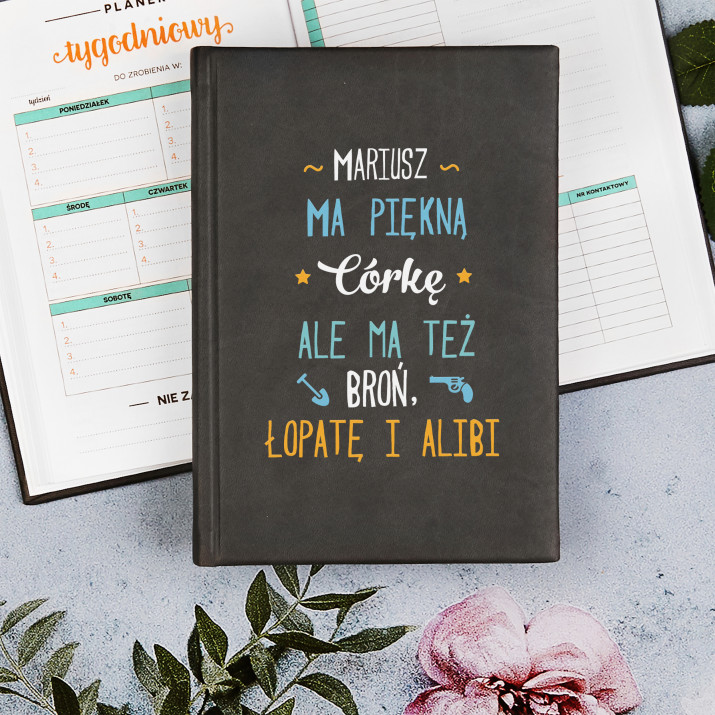 PLANER
tygodniowy
DO ZROBIENIA W:
tydzień
PONIEDZIAŁEK
1.
2.
3.
4.
ŚRODA
CZWARTEK
1.
2.
3.
4.
1.
2.
3.
4.
SOBOTĘ
1.
2.
3.
4.
NIE ZA
NR KONTAKTOWY
~ MARIUSZ ~
MA PIĘKNĄ
Córkę
ALE MA TEŻ
BROŃ,
ŁOPATĘ I ALIBI